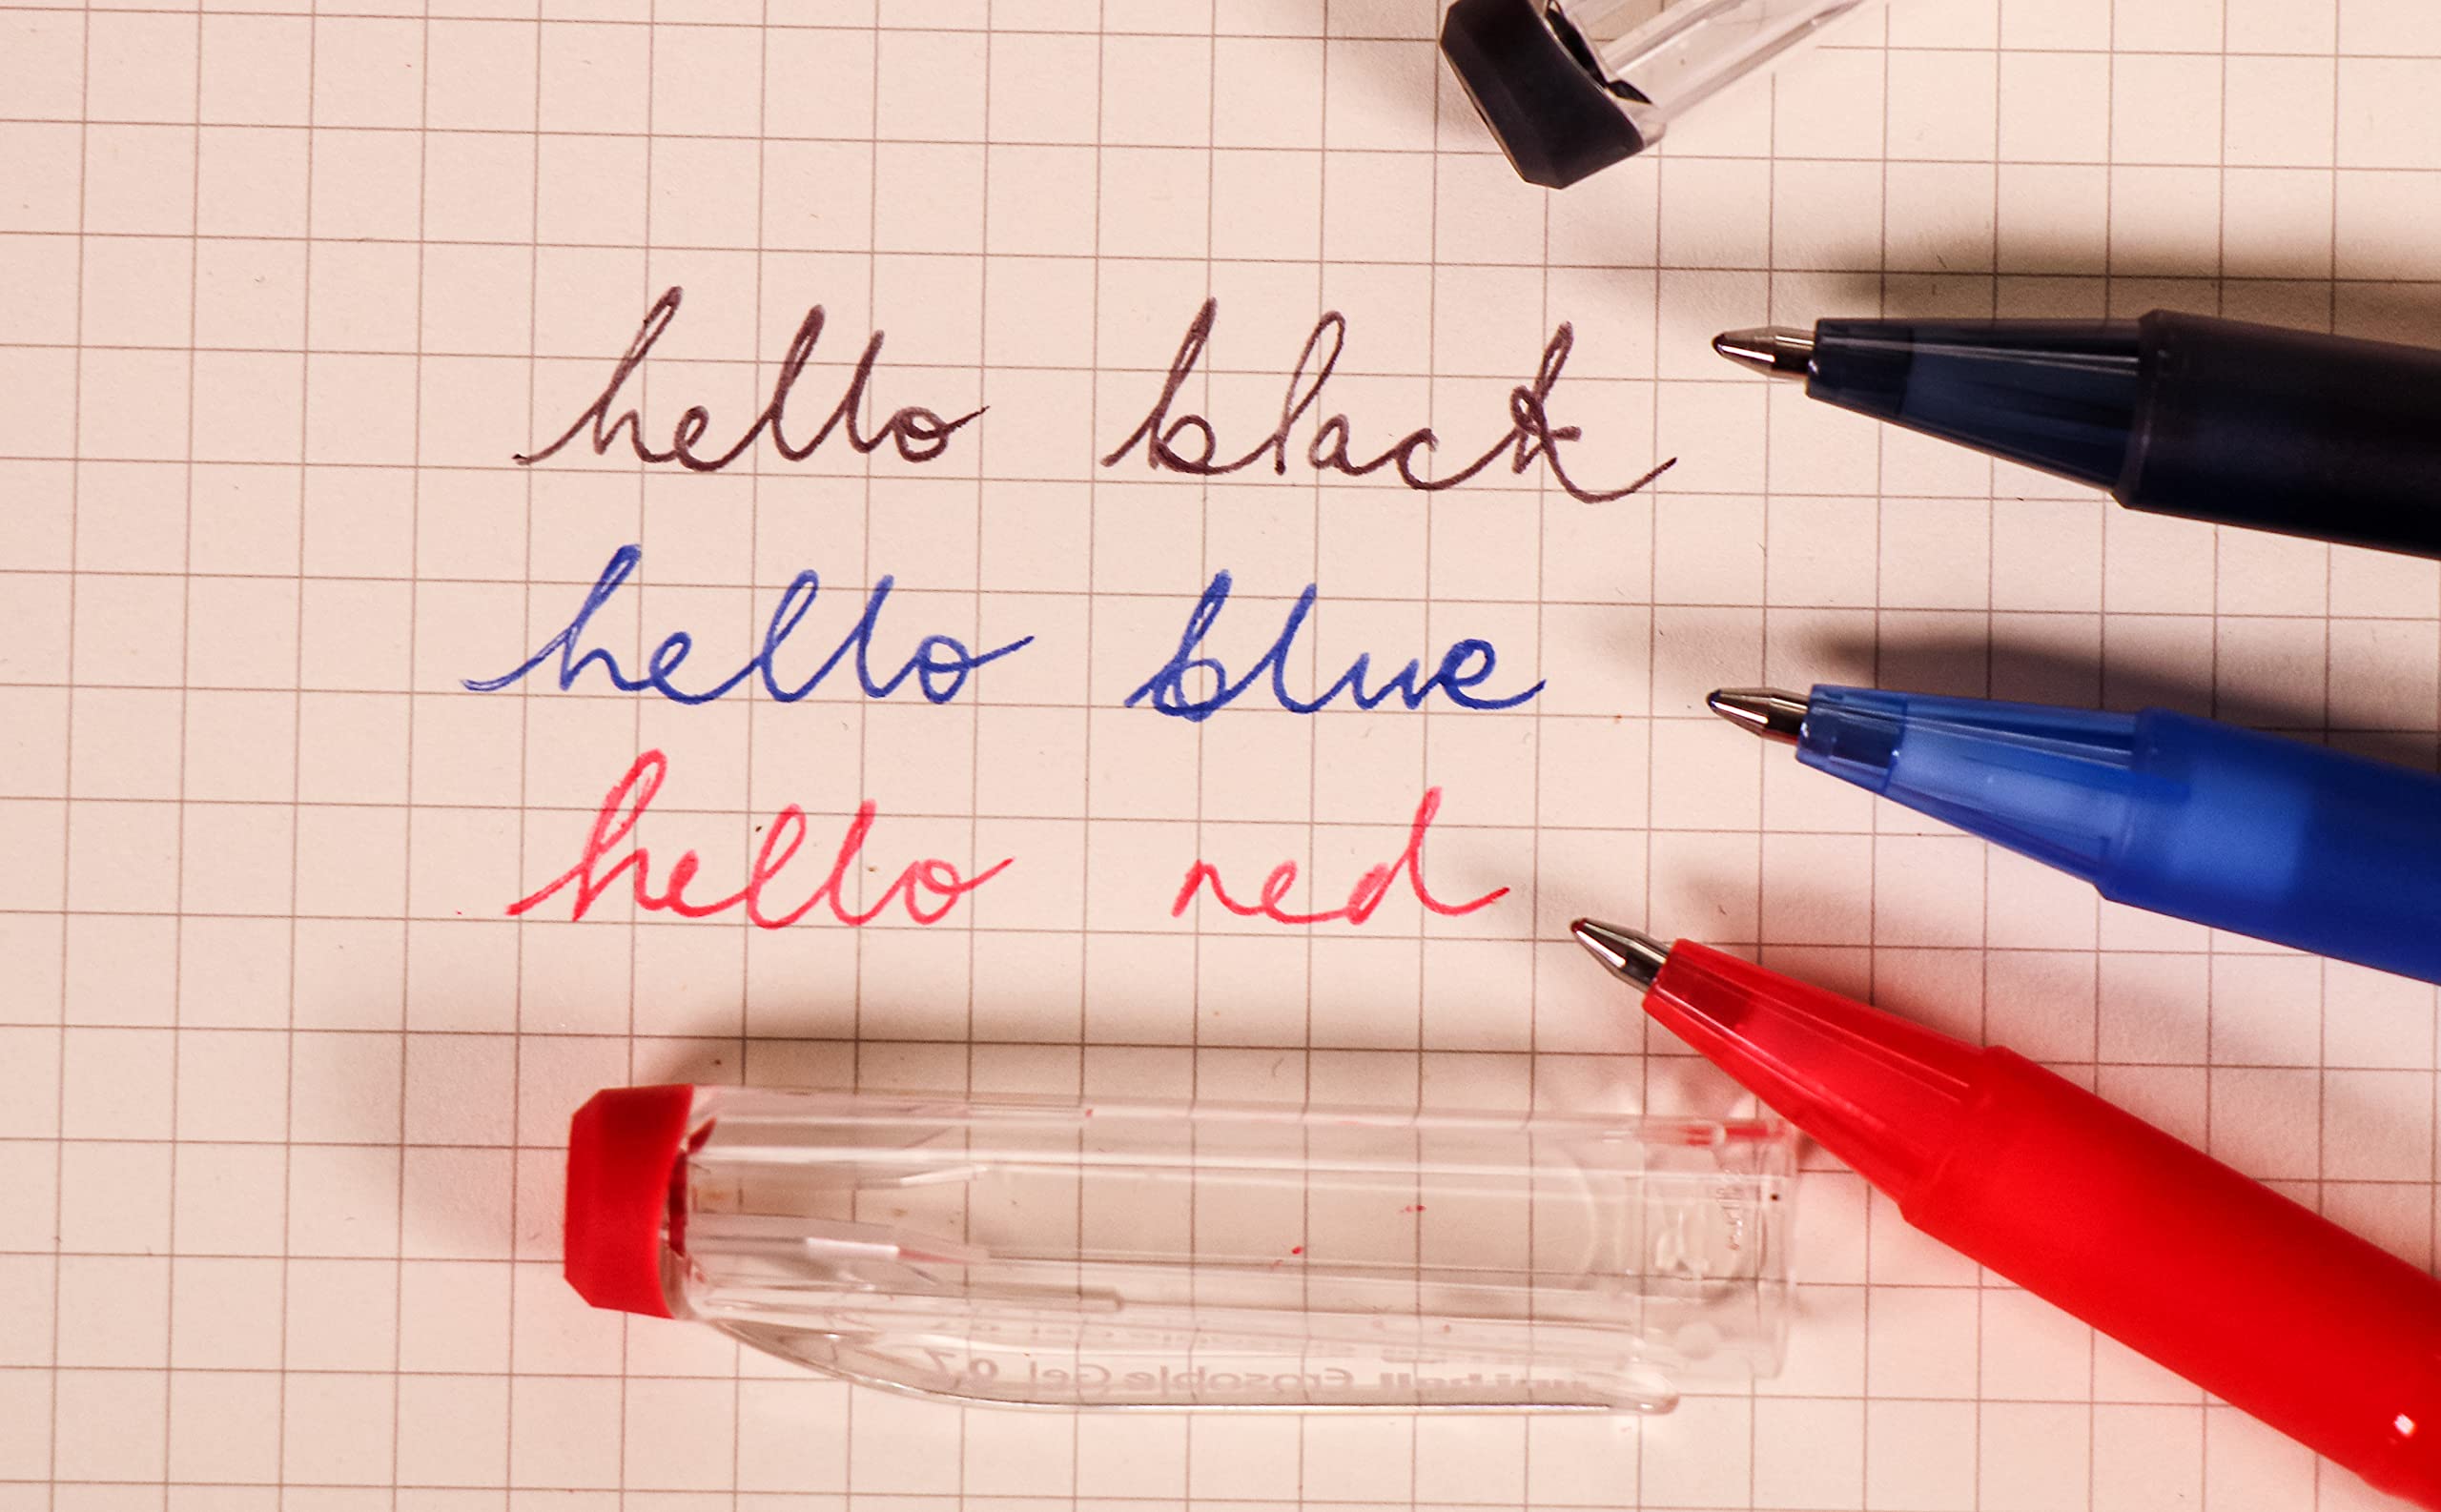 hello black
hello blue
hello red
uni-ball Erasable Gel 0.7